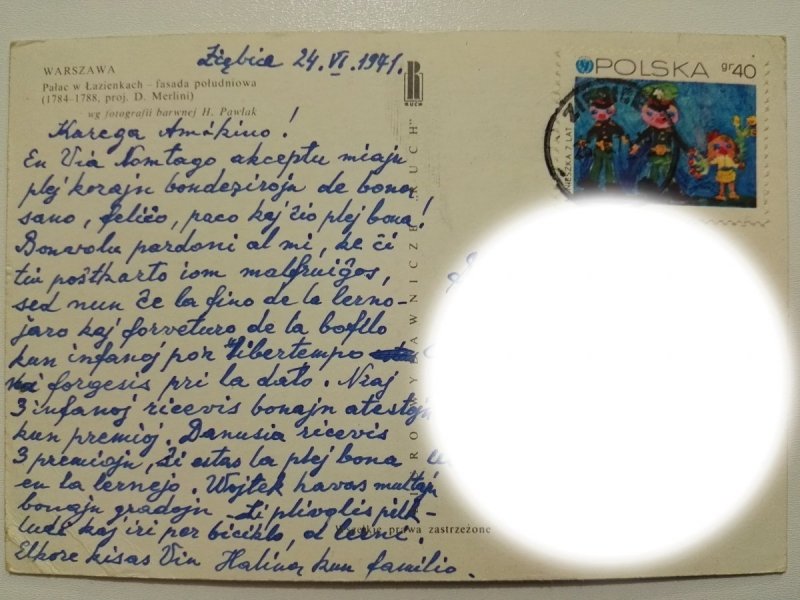 Ziębice 24.VI.1971.
WARSZAWA
Pałac w Łazienkach – fasada południowa
(1784-1788, proj. D. Merlini)
wg fotografii barwnej H. Pawlak
RUCH
POLSKA gr 40
NIESZKA 7 LAT
Karega Amikino!
En Via Nomtago akceptu miajn
plej korajn bondezirojn de bona
sano, feliĉo, paco kaj ĉio plej bona!
Bonvolu pardoni al mi, ke ĉi
tiu poŝtkarto iom malfruiĝos,
sed nun ĉe la fino de la lerno-
jaro kaj forveturo de la bofilo
kun infanoj por libertempo
mi forgesis pri la dato. Niaj
3 infanoj ricevis bonajn atestojn
kun premioj. Danusia ricevis
3 premiojn, ŝi estas la plej bona
en la lernejo. Wojtek havas multajn
bonajn gradojn. Li plivolis pilk-
ludi kaj iri per biciklo, ol lerni.
Elkore kisas Vin Halina kun familio.
Wszelkie prawa zastrzeżone